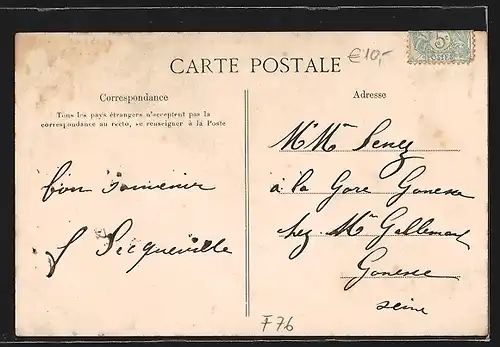 CARTE POSTALE
€10,-
5c
Correspondance
Tous les pays étrangers n'acceptent pas la
correspondance au recto, se renseigner à la Poste
bon souvenir
J Secqueville
Adresse
Mr Mme Senez
à la Gare Gonesse
chez Mr Gallemant
Gonesse
seine
F76